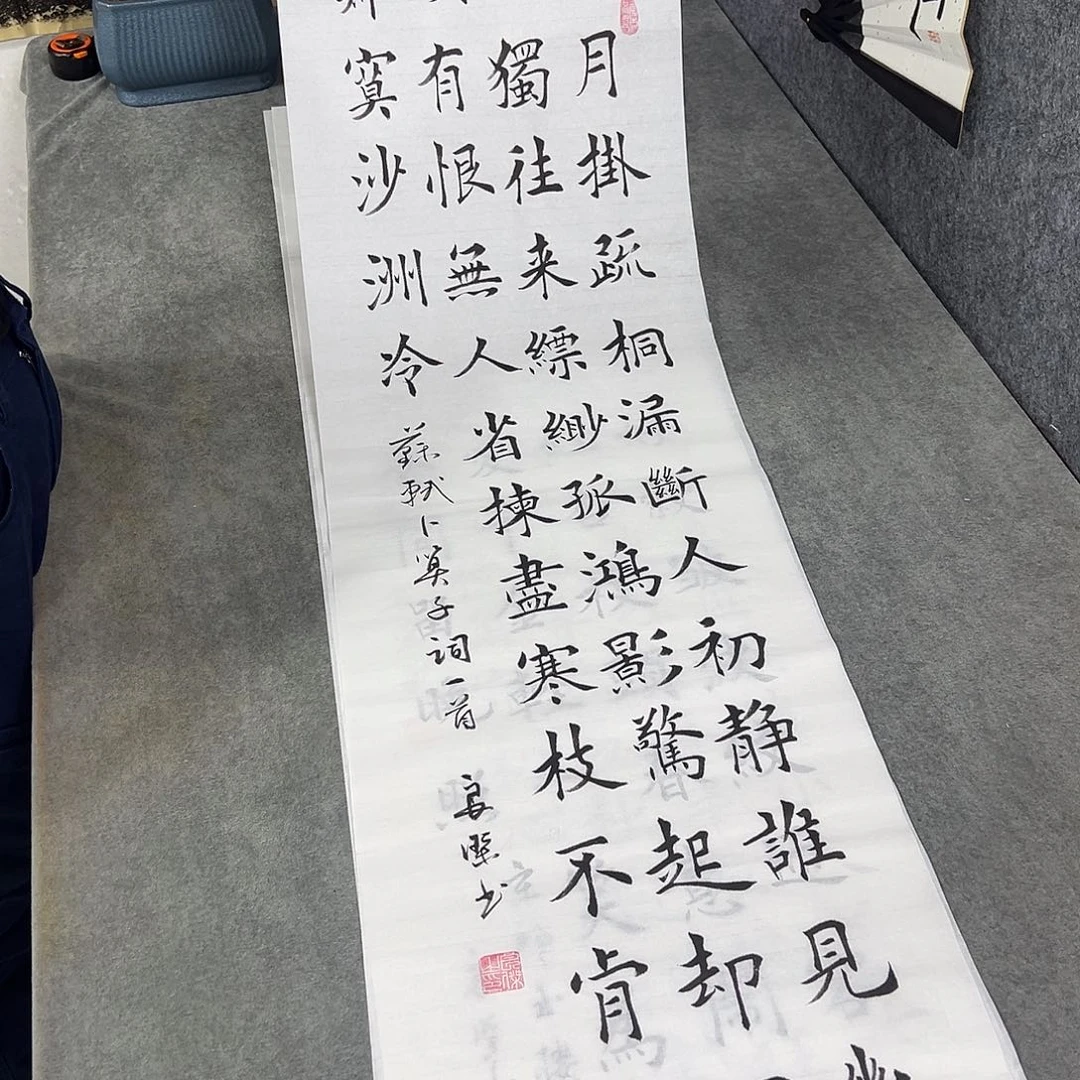 月掛疏桐漏斷人初静誰見
獨往来縹緲孤鴻影驚起却
有恨無人省揀盡寒枝不肯
寞沙洲冷
蘇軾卜算子詞一首
良 书